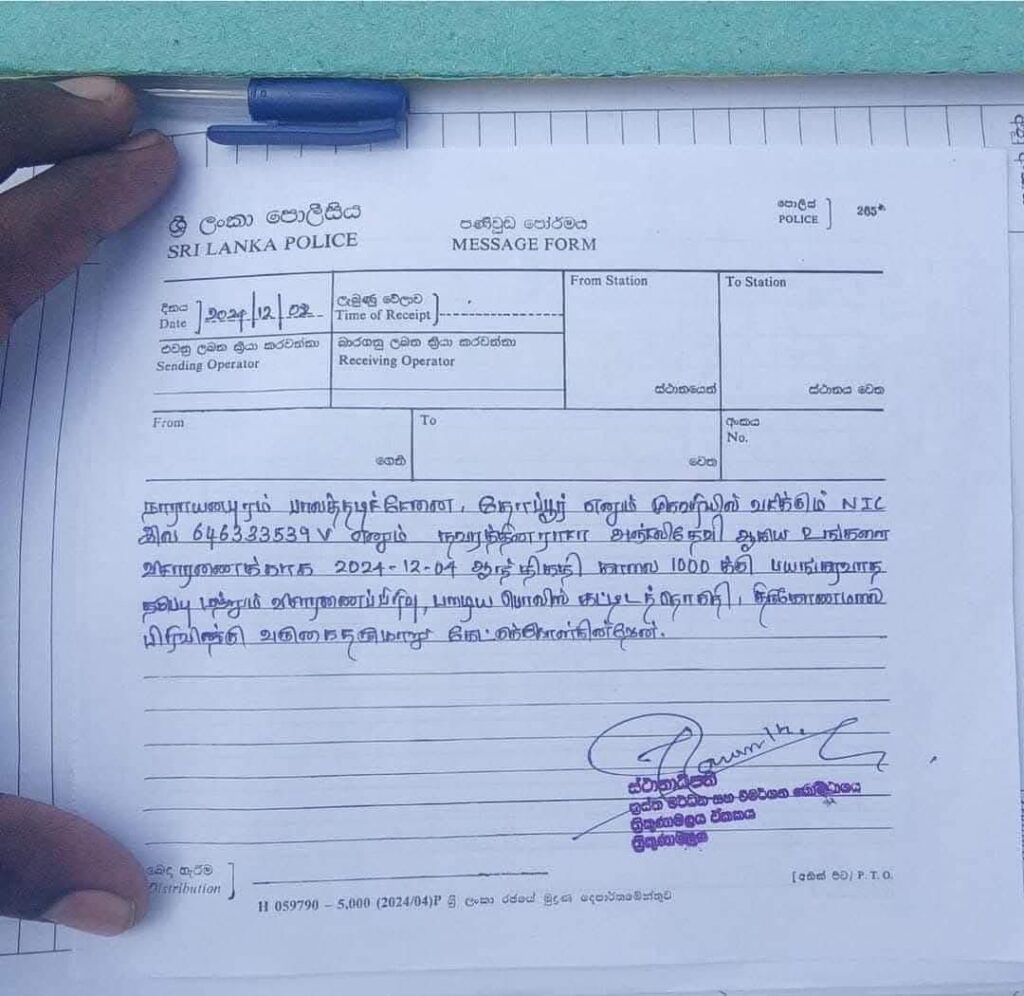 ශ්‍රී ලංකා පොලීසිය
SRI LANKA POLICE
පණිවුඩ පෝර්මය
MESSAGE FORM
පොලිස්
POLICE
265
දිනය
Date
2024/12/02
ලැබුණු වේලාව
Time of Receipt
From Station
ස්ථානයෙන්
To Station
ස්ථානය වෙත
එවනු ලබන ක්‍රියා කරවන්නා
Sending Operator
භාරගනු ලබන ක්‍රියා කරවන්නා
Receiving Operator
From
ගෙන්
To
වෙත
අංකය
No.
நாராயணபுரம் பாலத்தடிச்சேனை, தோப்பூர் எனும் முகவரியில் வசிக்கும் NIC
இல 646333539V எனும் நவரத்தினராசா அஞ்சலிதேவி ஆகிய உங்களை
விசாரணைக்காக 2024-12-04 ஆந் திகதி காலை 1000 க்கு பயங்கரவாத
தடுப்பு மற்றும் விசாரணைப்பிரிவு, பழைய பொலிஸ் கட்டிடத்தொகுதி, திருகோணமலை
பிரிவிற்கு வருகைதருமாறு கேட்டுக்கொள்கின்றேன்.
ස්ථානාධිපති
ත්‍රස්ත මර්ධන සහ විමර්ශන කොට්ඨාශය
ත්‍රිකුණාමලය ඒකකය
ත්‍රිකුණාමලය
බෙදා හැරීම
Distribution
[අනික් පිට/ P. T. O.
H 059790 – 5,000 (2024/04)P ශ්‍රී ලංකා රජයේ මුද්‍රණ දෙපාර්තමේන්තුව